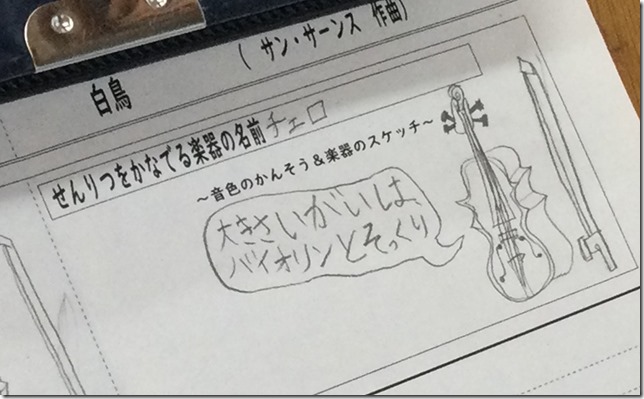 白鳥 （ サン・サーンス 作曲）
せんりつをかなでる楽器の名前 チェロ
～音色のかんそう＆楽器のスケッチ～
大きさいがいは、
バイオリンとそっくり